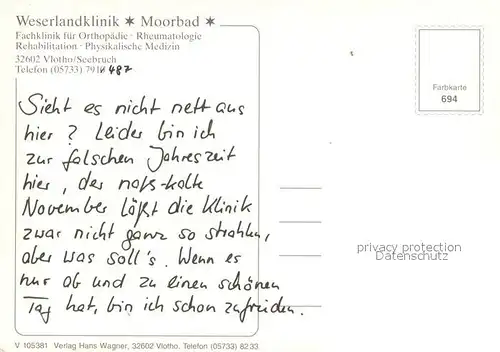 Weserlandklinik ✶ Moorbad ✶
Fachklinik für Orthopädie · Rheumatologie
Rehabilitation · Physikalische Medizin
32602 Vlotho/Seebruch
Telefon (05733) 791 487
Farbkarte
694
Sieht es nicht nett aus
hier? Leider bin ich
zur falschen Jahreszeit
hier, der naß-kalte
November läßt die Klinik
zwar nicht ganz so strahlen,
aber was soll's. Wenn es
nur ab und zu einen schönen
Tag hat, bin ich schon zufrieden.
privacy protection
Datenschutz
V 105381 Verlag Hans Wagner, 32602 Vlotho. Tel. (05733) 82 33